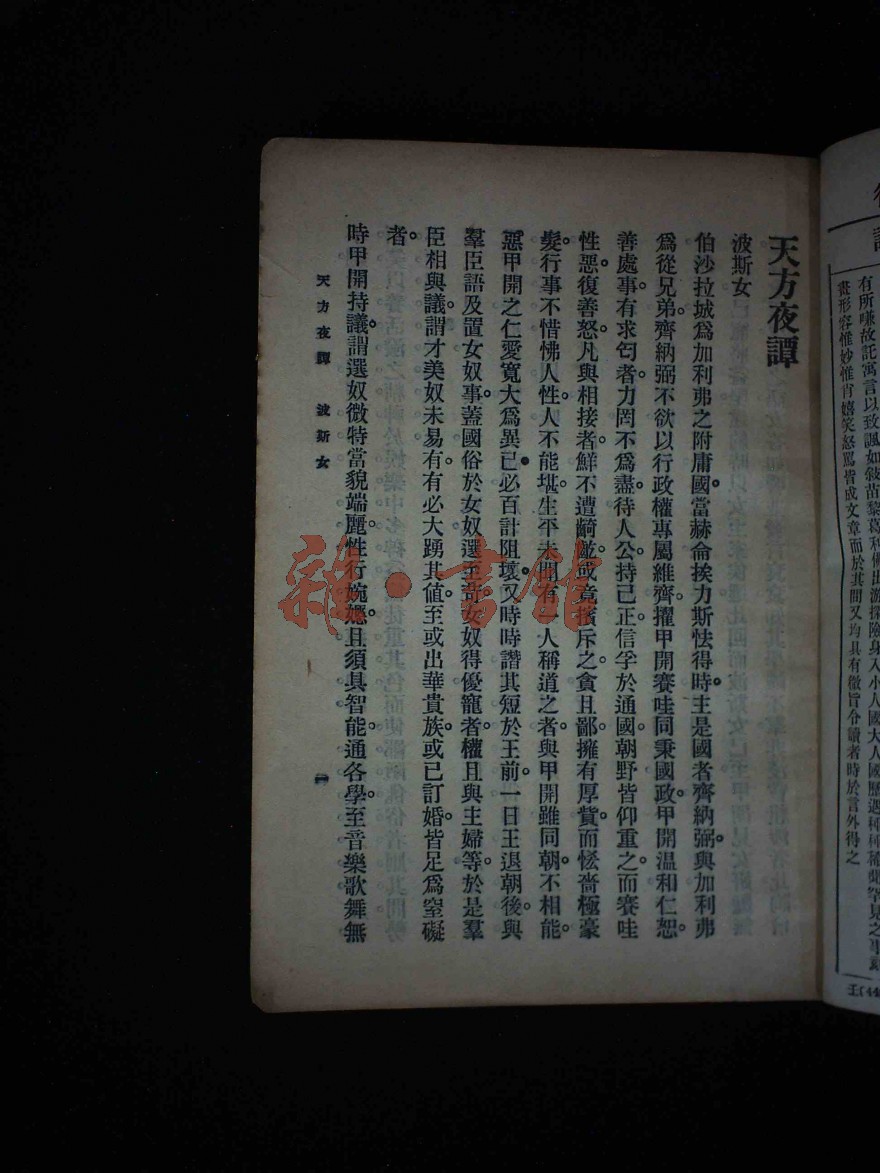 天方夜譚
波斯女
伯沙拉城爲加利弗之附庸國。當赫侖挨力斯怯得時。主是國者齊納弼。與加利弗
爲從兄弟。齊納弼不欲以行政權專屬維齊。擢甲開賽哇同秉國政。甲開溫和仁恕。
善處事。有求匄者。力罔不爲盡。待人公。持己正。信孚於通國。朝野皆仰重之。而賽哇
性惡。復善怒。凡與相接者。鮮不遭齮齕。或竟擯斥之。貪且鄙。擁有厚貲。而恡嗇極豪
髮。行事不惜怫人性。人不能堪。生平未聞有一人稱道之者。與甲開雖同朝。不相能。
惡甲開之仁愛寬大爲異己。必百計阻壞。又時時譖其短於王前。一日王退朝後。與
羣臣語及置女奴事。蓋國俗於女奴選至苛。女奴得優寵者。權且與主婦等。於是羣
臣相與議。謂才美奴未易有。有必大踴其値。至或出華貴族。或已訂婚。皆足爲窒礙
者。
時甲開持議。謂選奴微特當貌端麗。性行婉嫕。且須具智能。通各學。至音樂歌舞無
天方夜譚 波斯女
有所嗛故託寓言以致諷如敍苗黎葛利佛出游探險身入小人國大人國歷遇種種稀罕見之事
書形容惟妙惟肖嬉笑怒罵皆成文章而於其間又均具有微旨令讀者時於言外得之
雜·書館